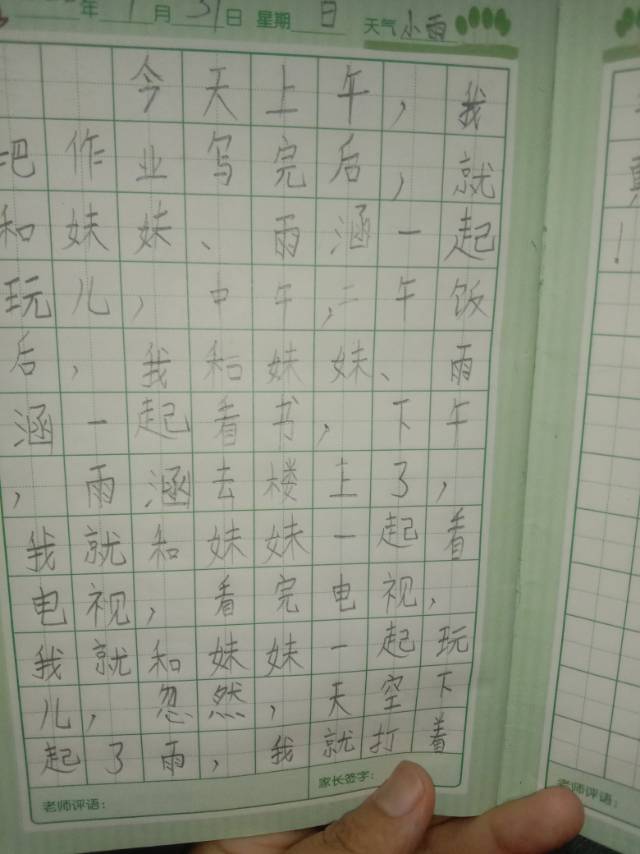 年1月31日 星期日 天气小雨
今天上午，我
把作业写完后，就
和妹妹、雨涵一起
玩儿，中午，二午饭
后，我和妹妹、雨
涵一起看书，下午
，雨涵去楼上了，
我就和妹妹一起看
电视，看完电视，
我就和妹妹一起玩
儿，忽然，天空下
起了雨，我就打着
老师评语： 家长签字：
！
老师评语：